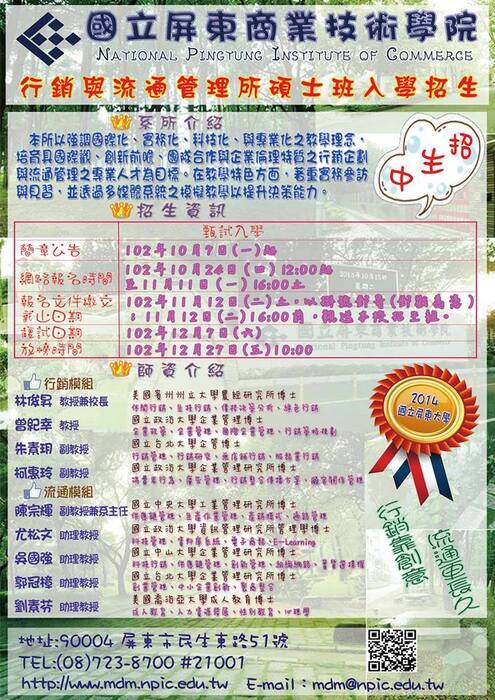 國立屏東商業技術學院
NATIONAL PINGTUNG INSTITUTE OF COMMERCE
行銷與流通管理所碩士班入學招生
系所介紹
本所以強調國際化、實務化、科技化、與專業化之教學理念,
培育具國際觀、創新前瞻、團隊合作與企業倫理特質之行銷企劃
與流通管理之專業人才為目標。在教學特色方面,著重實務參訪
與見習,並透過多媒體系統之模擬教學以提升決策能力。
招生中
招生資訊
甄試入學
簡章公告 102年10月7日(一)起
網路報名時間 102年10月24日(四)12:00起
至11月11日(一)16:00止
報名文件繳交截止日期 102年11月12日(二)止。以掛號郵寄(郵戳為憑)
;11月12日(二)16:00前,親送本校招生班。
甄試日期 102年12月7日(六)
放榜時間 102年12月27日(五)10:00
師資介紹
行銷模組
林俊昇 教授兼校長 美國賓州州立大學農經研究所博士
曾紀幸 教授 國立政治大學企業管理博士
企業政策、企業管理、國際企業管理、行銷策略規劃
朱素玥 副教授 國立台北大學企管博士
行銷管理、行銷研究、
柯惠玲 副教授 國立政治大學企業管理研究所博士
流通模組
陳宗輝 副教授兼系主任 國立中央大學工業管理研究所博士
尤松文 助理教授 國立政治大學資訊管理研究所學博士
電子商務、E-Learning
吳國強 助理教授 國立中山大學企業管理研究所博士
郭冠樟 助理教授 國立台北大學企業管理研究所博士
創業管理、中小企業創新、
劉素芬 助理教授 美國喬治亞大學成人教育博士
成人教育、人力資源發展、性別教育、心理學
2014
國立屏東大學
行銷靠創意
流通更長久
地址:90004 屏東市民生東路51號
TEL:(08)723-8700 #21001
http://www.mdm.npic.edu.tw E-mail : mdm@npic.edu.tw